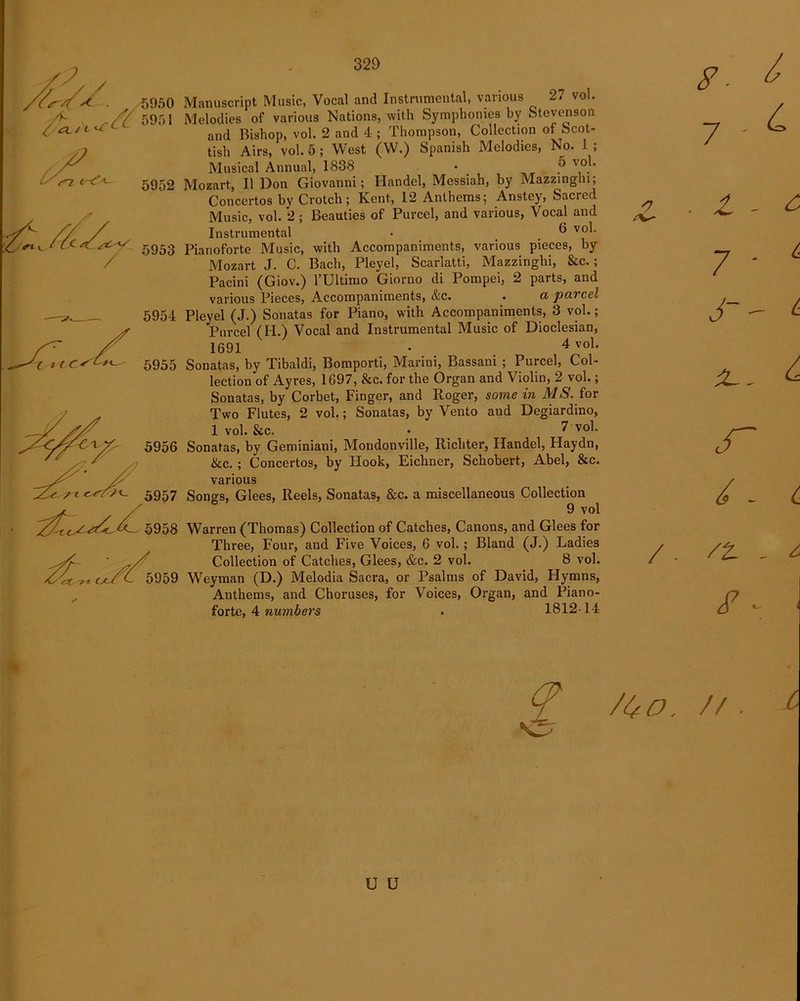 329
5950 Manuscript Music, Vocal and Instrumental, various 27 vol.
5951 Melodies of various Nations, with Symphonies by Stevenson
and Bishop, vol. 2 and 4 ; Thompson, Collection of Scot-
tish Airs, vol. 5 ; West (W.) Spanish Melodies, No. 1 ;
Musical Annual, 1838 . 5 vol.
5952 Mozart, Il Don Giovanni ; Handel, Messiah, by Mazzinghi ;
Concertos by Crotch ; Kent, 12 Anthems ; Anstey, Sacred
Music, vol. 2 ; Beauties of Purcel, and various, Vocal and
Instrumental . 6 vol.
5953 Pianoforte Music, with Accompaniments, various pieces, by
Mozart J. C. Bach, Pleyel, Scarlatti, Mazzinghi, &c. ;
Pacini (Giov.) l'Ultimo Giorno di Pompei, 2 parts, and
various Pieces, Accompaniments, &c. . a parcel
5954 Pleyel (J.) Sonatas for Piano, with Accompaniments, 3 vol. ;
Purcel (H.) Vocal and Instrumental Music of Dioclesian,
1691 . 4 vol.
5955 Sonatas, by Tibaldi, Bomporti, Marini, Bassani ; Purcel, Col-
lection of Ayres, 1697, &c. for the Organ and Violin, 2 vol. ;
Sonatas, by Corbet, Finger, and Roger, some in MS. for
Two Flutes, 2 vol. ; Sonatas, by Vento and Degiardino,
1 vol. &c. . 7 vol.
5956 Sonatas, by Geminiani, Mondonville, Richter, Handel, Haydn,
&c. ; Concertos, by Hook, Eichner, Schobert, Abel, &c.
various
5957 Songs, Glees, Reels, Sonatas, &c. a miscellaneous Collection
9 vol
5958 Warren (Thomas) Collection of Catches, Canons, and Glees for
Three, Four, and Five Voices, 6 vol. ; Bland (J.) Ladies
Collection of Catches, Glees, &c. 2 vol. 8 vol.
5959 Weyman (D.) Melodia Sacra, or Psalms of David, Hymns,
Anthems, and Choruses, for Voices, Organ, and Piano-
forte, 4 numbers . 1812-14
8 . 6
7 - 6
2 . 2 - 6
7 - 6
5 - 6
2 - 6
5
6 - 6
1 . 12 - 6
8 -
140. 11 . 6
U U